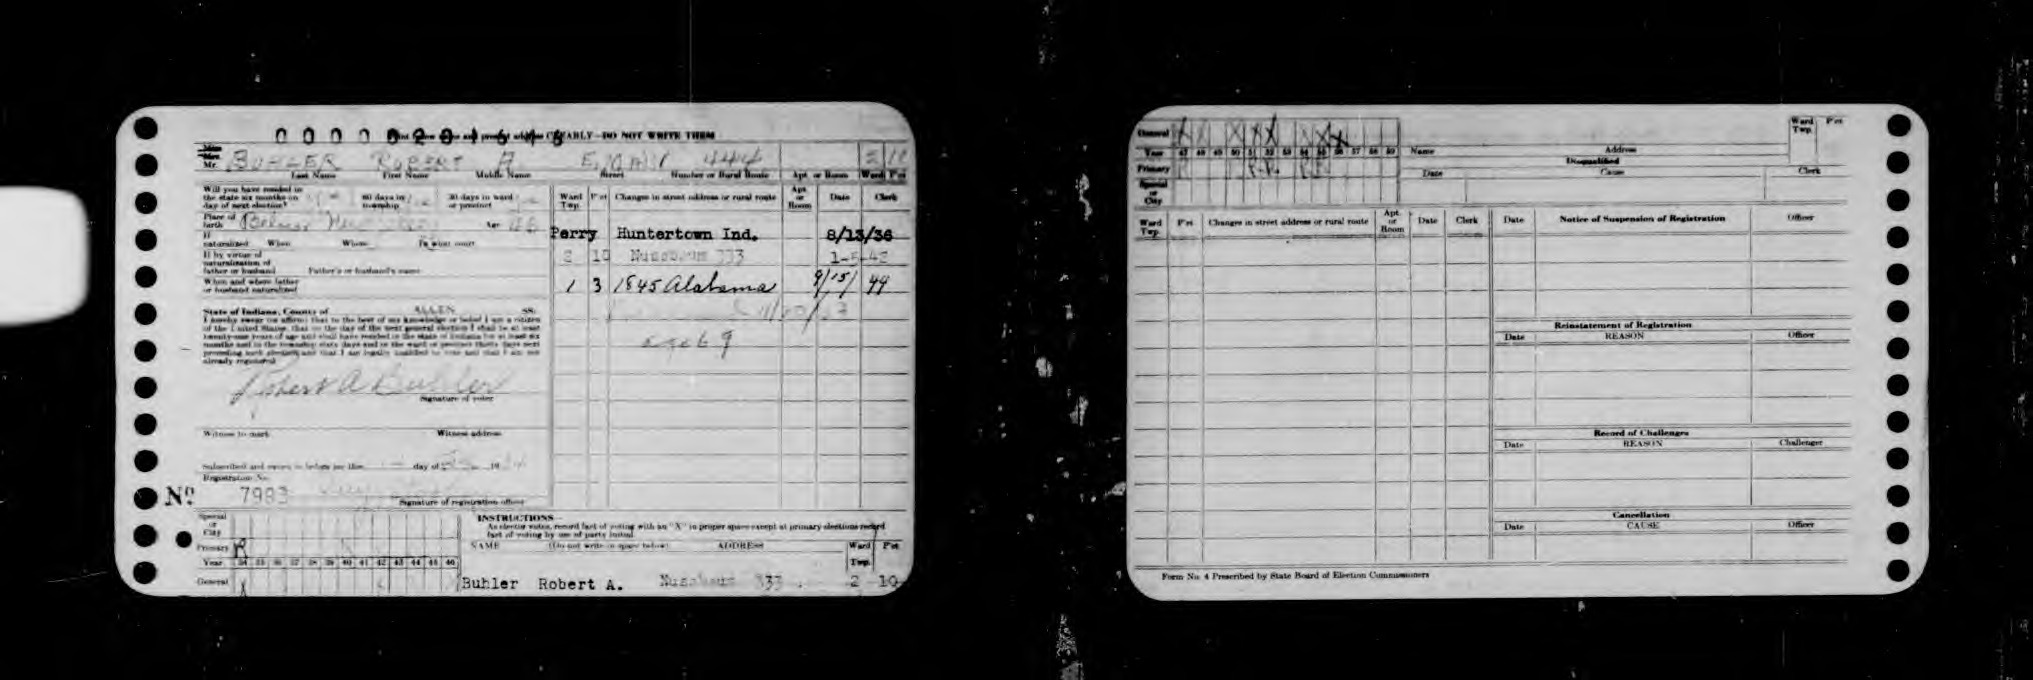 0 0 0 0 0 2 0 1 6 4 8
CLEARLY—DO NOT WRITE THEM
Mr. BUHLER ROBERT A. 444 2 10
Last Name First Name Middle Name Street Number or Rural Route Apt. or Room Ward P'ct
Will you have resided in
the state six months on
day of next election?
60 days in
township
30 days in ward
or precinct
Place of
birth
Age 46
If
naturalized When Where In what court
If by virtue of
naturalization of
father or husband Father's or husband's name
When and where father
or husband naturalized
State of Indiana, County of ALLEN SS:
I hereby swear (or affirm) that to the best of my knowledge or belief I am a citizen
of the United States, that on the day of the next general election I shall be at least
twenty-one years of age and shall have resided in the state of Indiana for at least six
months and in the township sixty days and in the ward or precinct thirty days next
preceding such election, and that I am legally qualified to vote and that I am not
already registered.
Robert A Buhler
Signature of voter
Witness to mark Witness address
Subscribed and sworn to before me this day of 19
Registration No.
Nº 7983
Signature of registration officer
Ward
Twp. P'ct Changes in street address or rural route Apt.
or
Room Date Clerk
Perry Huntertown Ind. 8/13/36
2 10 Nussbaum 333 1-5-42
1 3 1845 Alabama 9/15/44
age 69
Special
or
City
Primary R
Year 34 35 36 37 38 39 40 41 42 43 44 45 46
General X
INSTRUCTIONS—
As elector votes, record fact of voting with an "X" in proper space except at primary elections record
fact of voting by use of party initial
NAME (Do not write in space below) ADDRESS Ward
Twp. P'ct
Buhler Robert A. Nussbaum 333 2 10
General X X X X X X X X
Year 47 48 49 50 51 52 53 54 55 56 57 58 59
Primary R R R R R
Special
or
City
Name Address Ward
Twp. P'ct
Disqualified
Date Cause Clerk
Ward
Twp. P'ct Changes in street address or rural route Apt.
or
Room Date Clerk
Date Notice of Suspension of Registration Officer
Reinstatement of Registration
Date REASON Officer
Record of Challenges
Date REASON Challenger
Cancellation
Date CAUSE Officer
Form No. 4 Prescribed by State Board of Election Commissioners